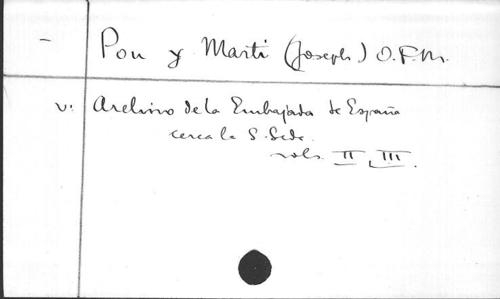 - Pou y Marti (Joseph) O.F.M.
v: Archivo de la Embajada de España
cerca la S. Sede.
vols. II, III.